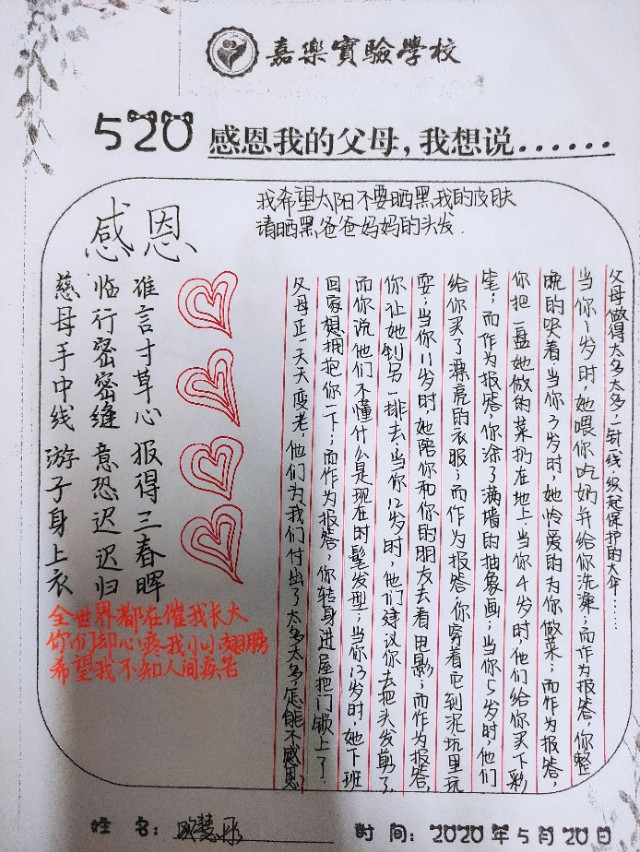 嘉樂實驗學校
520 感恩我的父母,我想说……
我希望太阳不要晒黑我的皮肤
请晒黑爸爸妈妈的头发.
感恩
慈母手中线 游子身上衣
临行密密缝 意恐迟迟归
谁言寸草心 报得三春晖
全世界都在催我长大
你们却心疼我小小翅膀
希望我不知人间疾苦
父母做得太多太多,一针一线,级起保护的大伞……
当你1岁时,她喂你吃奶并给你洗澡;而作为报答,你整
晚的哭着;当你3岁时,她怜爱的为你做菜;而作为报答,
你把一盘她做的菜扔在地上.当你4岁时,他们给你买下彩
笔;而作为报答,你涂了满墙的抽象画;当你5岁时,他们
给你买了漂亮的衣服;而作为报答,你穿着它到泥坑里玩
耍;当你11岁时,她陪你和你的朋友去看电影;而作为报答,
你让她到另一排去.当你12岁时,他们建议你去把头发剪了
而你说他们不懂什么是现在时髦发型;当你13岁时,她下班
回家想拥抱你一下;而作为报答,你转身进屋把门锁上了.
父母正一天天变老,他们为我们付出了太多太多,怎能不感恩
姓 名:
时 间:2020年5月20日